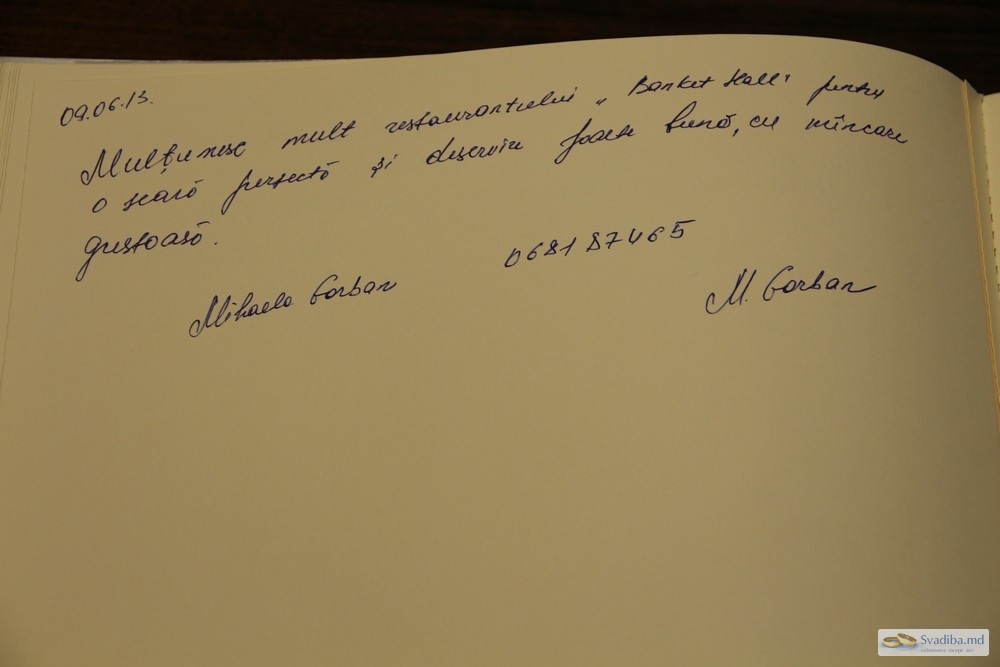 09.06.13.
Mulțumesc mult restaurantului „Banket Hall" pentru
o seară perfectă și deservire foarte bună, cu mîncare
gustoasă.
068187465
Mihaela Gorban
M. Gorban
Svadiba.md